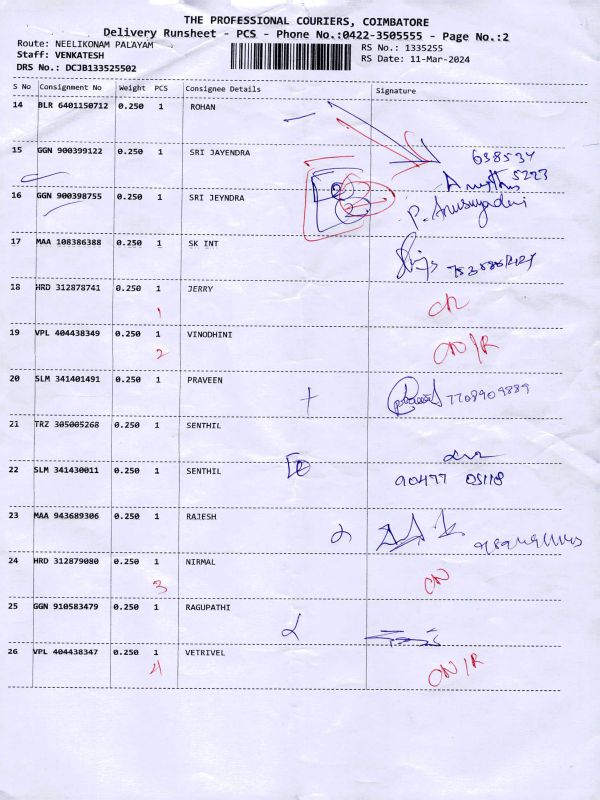 THE PROFESSIONAL COURIERS, COIMBATORE
Delivery Runsheet - PCS - Phone No.:0422-3505555 - Page No.:2
Route: NEELIKONAM PALAYAM RS No.: 1335255
Staff: VENKATESH RS Date: 11-Mar-2024
DRS No.: DCJB133525502
S No Consignment No Weight PCS Consignee Details Signature
14 BLR 6401150712 0.250 1 ROHAN
15 GGN 900399122 0.250 1 SRI JAYENDRA 638534
5223
16 GGN 900398755 0.250 1 SRI JEYNDRA P. Anusuyadevi
17 MAA 108386388 0.250 1 SK INT
18 HRD 312878741 0.250 1 JERRY
1
19 VPL 404438349 0.250 1 VINODHINI ON/R
2
20 SLM 341401491 0.250 1 PRAVEEN 7708909889
21 TRZ 305005268 0.250 1 SENTHIL
22 SLM 341430011 0.250 1 SENTHIL 90477 05118
23 MAA 943689306 0.250 1 RAJESH
24 HRD 312879080 0.250 1 NIRMAL ON
3
25 GGN 910583479 0.250 1 RAGUPATHI
26 VPL 404438347 0.250 1 VETRIVEL ON/R
4